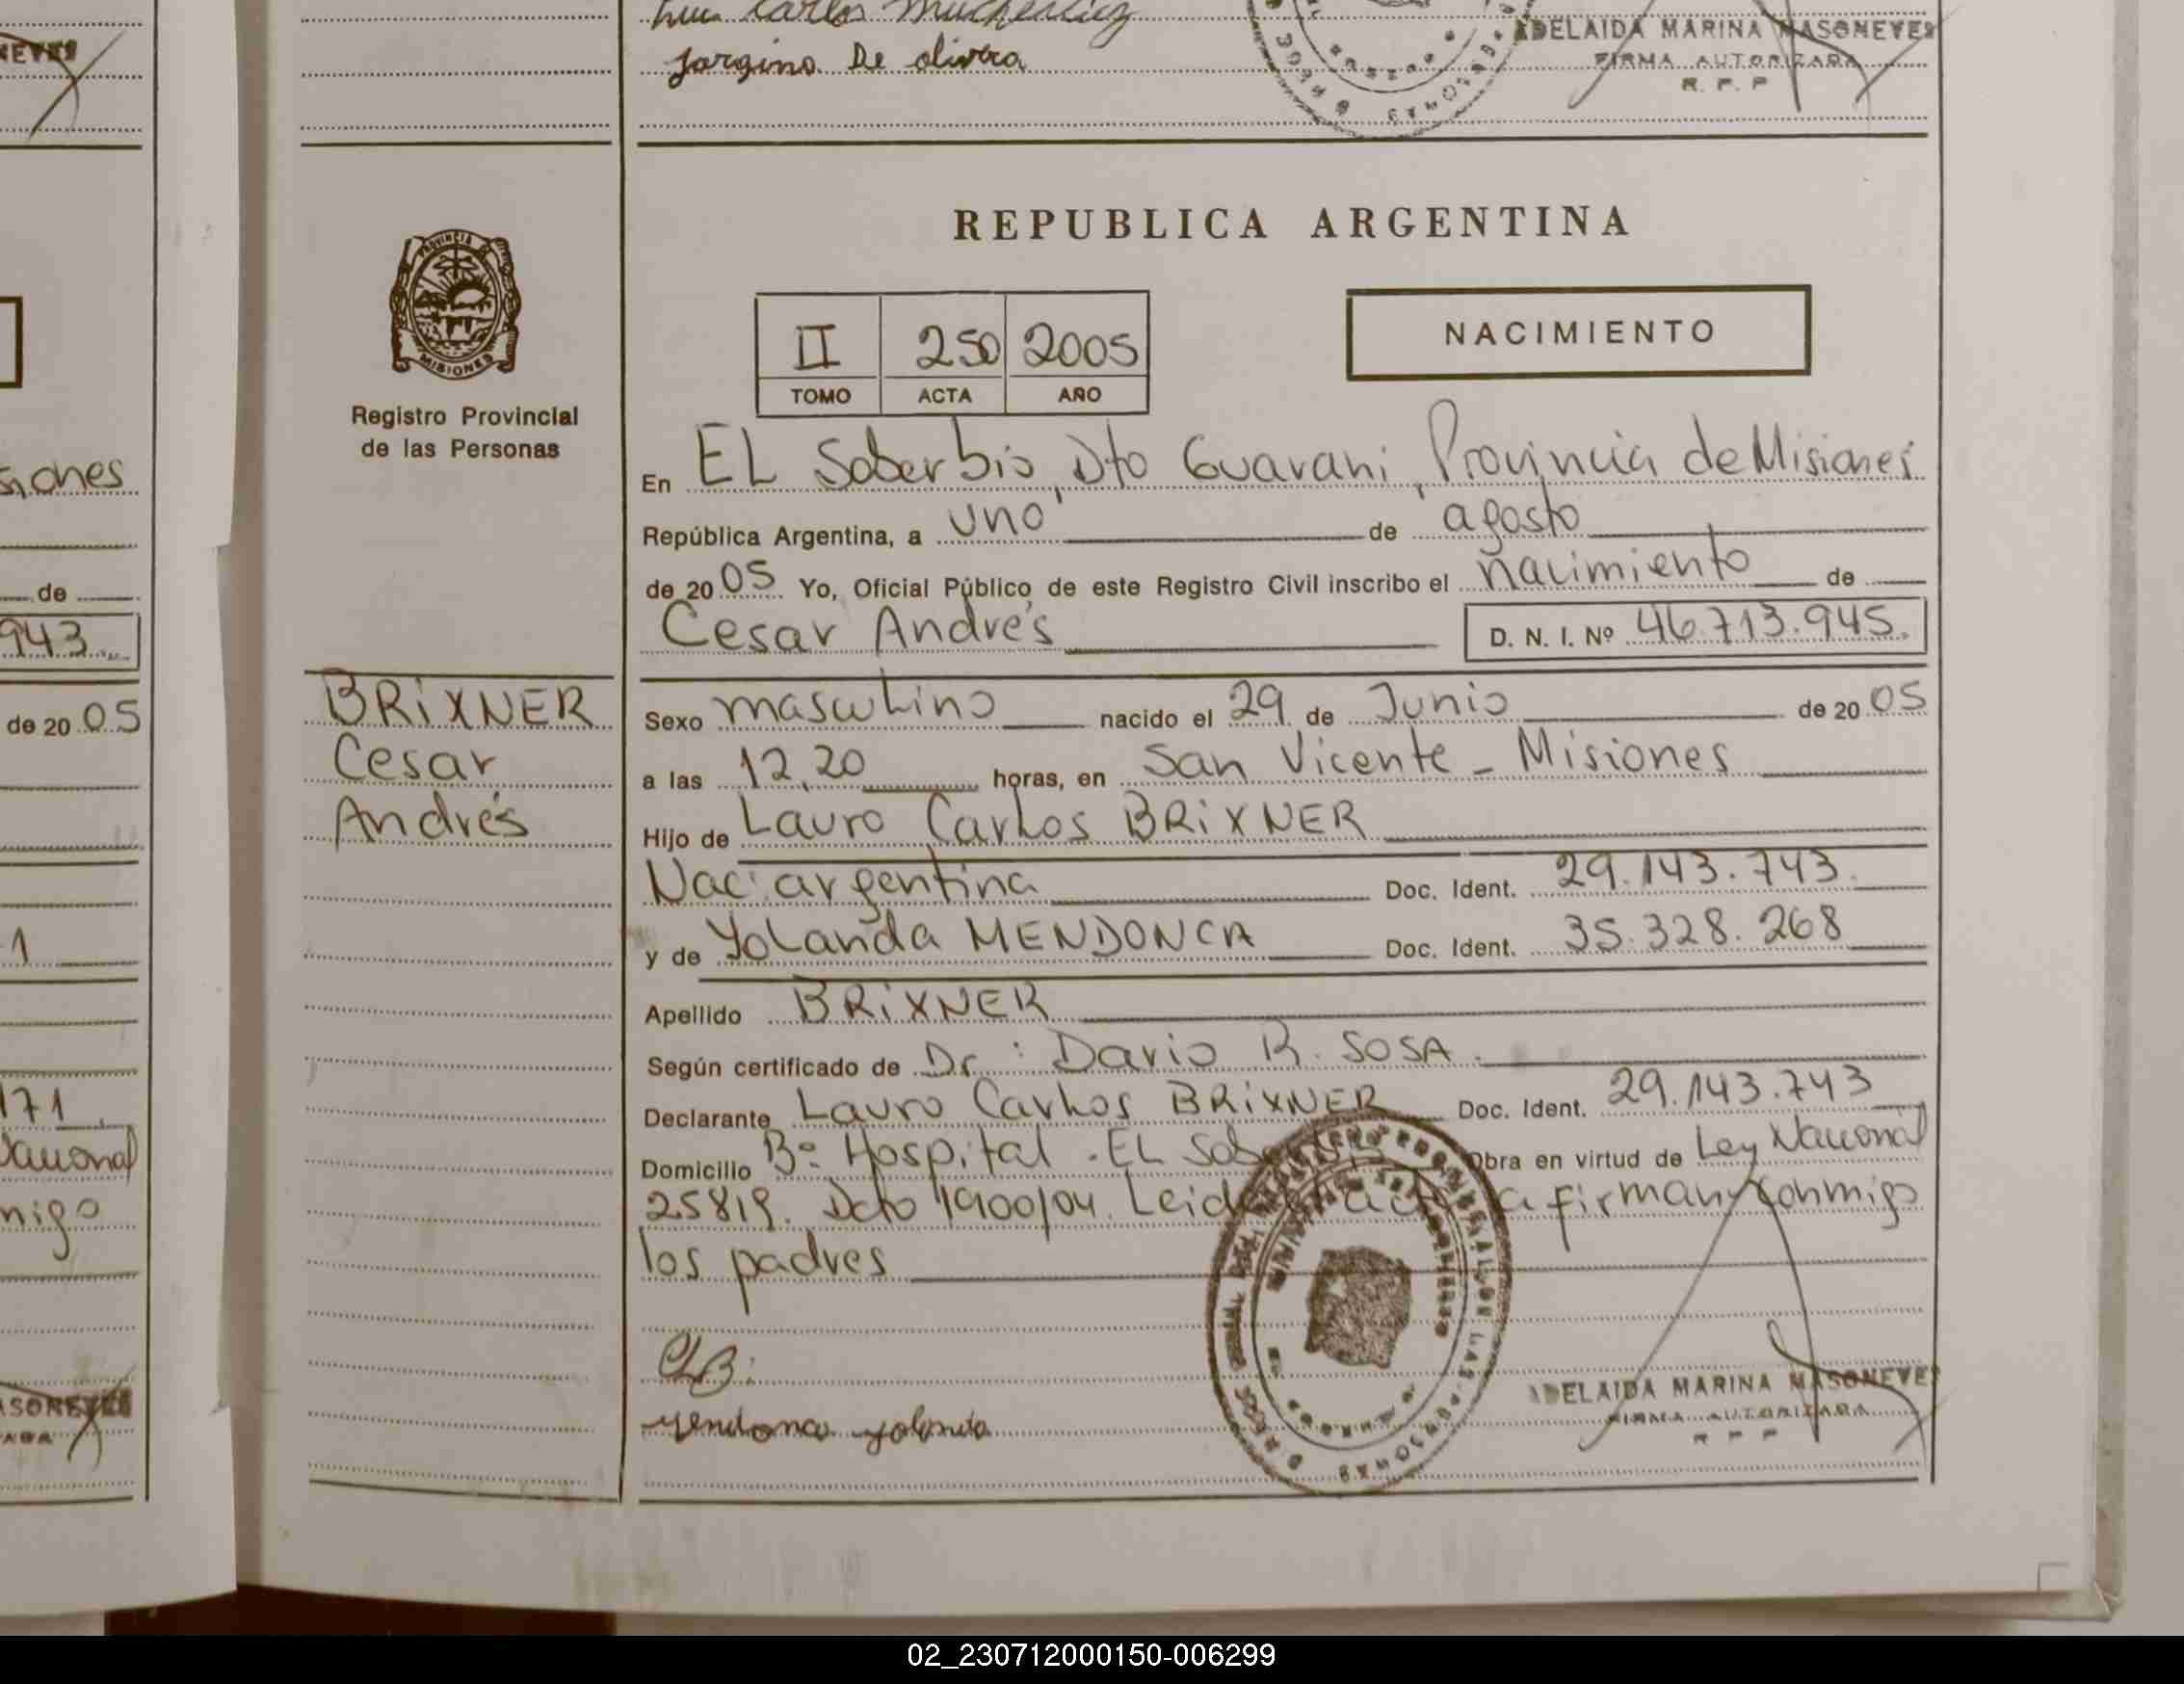 Luis Carlos
Jorgino De olivera
ADELAIDA MARINA MASONEVES
FIRMA AUTORIZADA
R. P. P
NEVES
siones
de
943
de 20 05
1
171
Nacional
migo
MASONEVES
REPUBLICA ARGENTINA
PROVINCIA DE
MISIONES
Registro Provincial
de las Personas
II 250 2005
TOMO ACTA AÑO
NACIMIENTO
En EL Soberbio, Dto Guarani, Provincia de Misiones
República Argentina, a uno de agosto
de 20 05 Yo, Oficial Público de este Registro Civil inscribo el nacimiento de
Cesar Andrés D. N. I. Nº 46.713.945.
BRiXNER
Cesar
Andrés
Sexo masculino nacido el 29 de Junio de 20 05
a las 12,20 horas, en San Vicente - Misiones
Hijo de Lauro Carlos BRiXNER
Nac: argentina Doc. Ident. 29.143.743.
y de Yolanda MENDONCA Doc. Ident. 35.328.268
Apellido BRiXNER
Según certificado de Dr: Dario R. SOSA.
Declarante Lauro Carlos BRiXNER Doc. Ident. 29.143.743
Domicilio Bº Hospital - EL Soberbio Obra en virtud de Ley Nacional
25819. Dcto 1900/04. Leida acta firman conmigo
los padres
CLB:
Mendonca yolanda
ADELAIDA MARINA MASONEVES
FIRMA AUTORIZADA
R P P
02_230712000150-006299